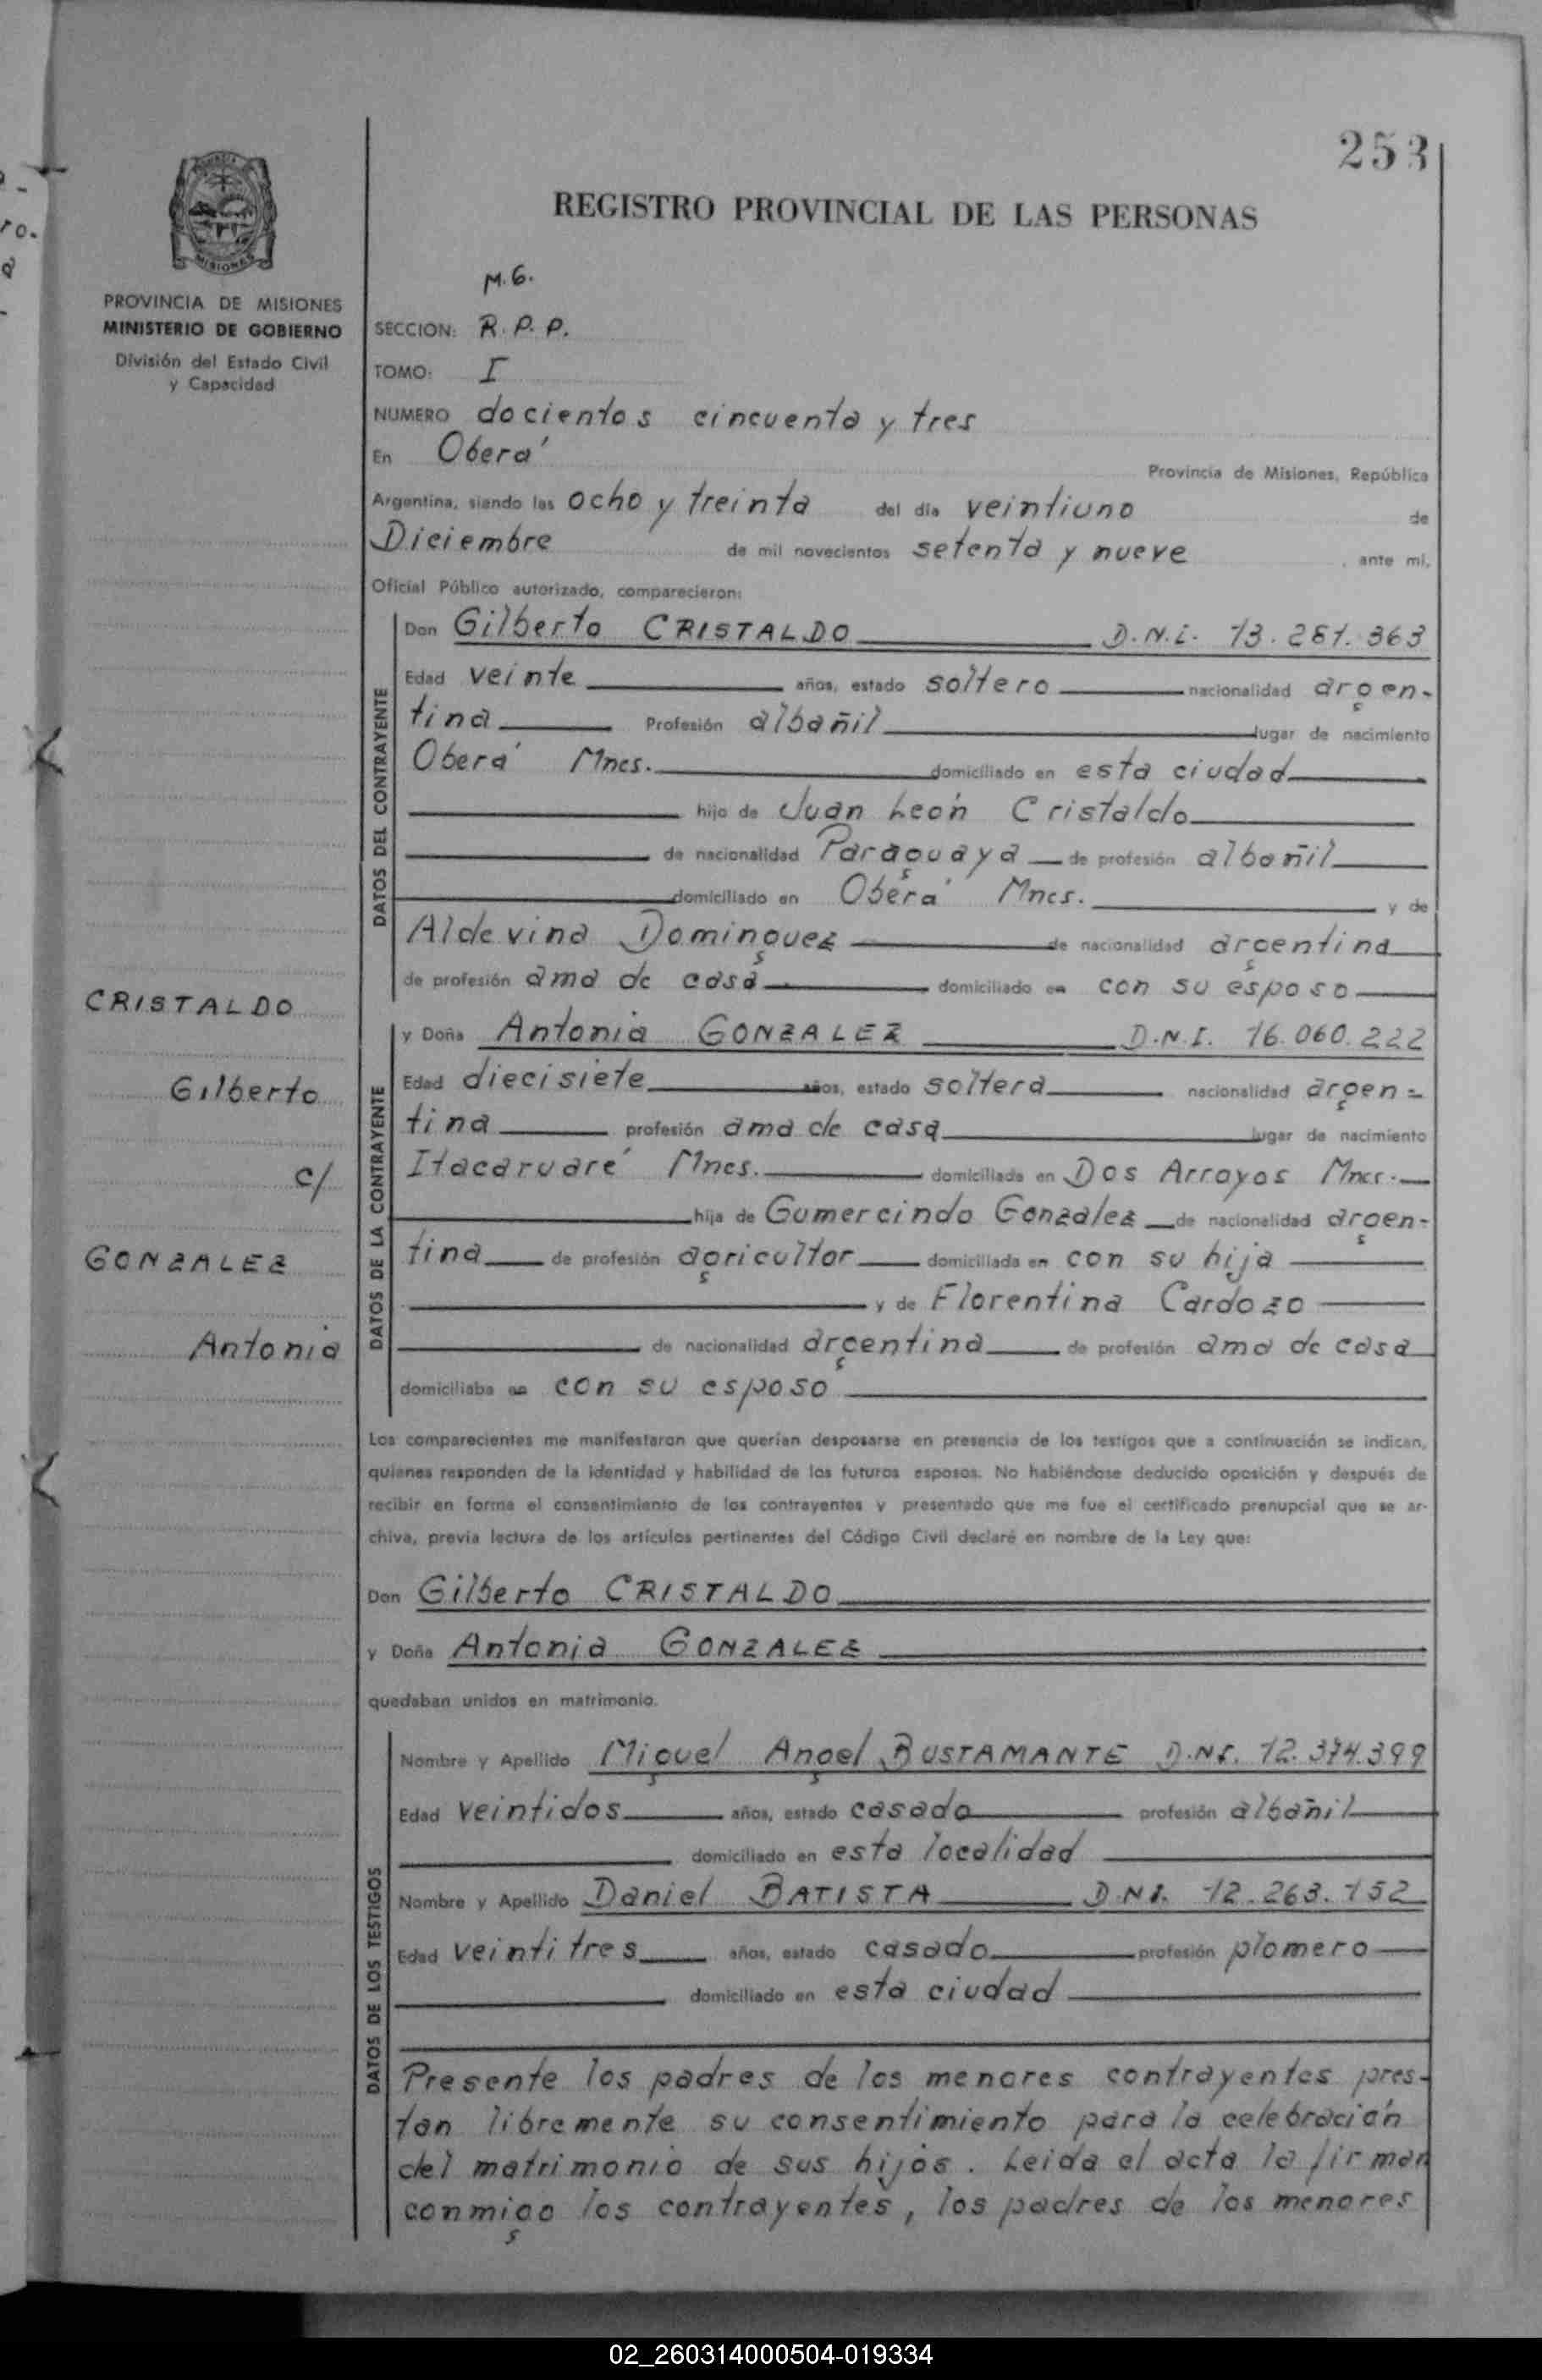 253
REGISTRO PROVINCIAL DE LAS PERSONAS
MISIONES
PROVINCIA DE MISIONES
MINISTERIO DE GOBIERNO
División del Estado Civil
y Capacidad
M. G.
SECCION: R. P. P.
TOMO: I
NUMERO docientos cincuenta y tres
En Oberá
Provincia de Misiones, República
Argentina, siendo las ocho y treinta del día veintiuno de
Diciembre de mil novecientos setenta y nueve, ante mí,
Oficial Público autorizado, comparecieron:
DATOS DEL CONTRAYENTE
Don Gilberto CRISTALDO D.N.I. 13.281.363
Edad veinte años, estado soltero nacionalidad argen-
tina Profesión albañil lugar de nacimiento
Oberá Mnes. domiciliado en esta ciudad
hijo de Juan León Cristaldo
de nacionalidad Paraguaya de profesión albañil
domiciliado en Oberá Mnes. y de
Aldevina Dominguez de nacionalidad argentina
de profesión ama de casa domiciliado en con su esposo
CRISTALDO
Gilberto
c/
GONZALEZ
Antonia
DATOS DE LA CONTRAYENTE
y Doña Antonia GONZALEZ D.N.I. 16.060.222
Edad diecisiete años, estado soltera nacionalidad argen=
tina profesión ama de casa lugar de nacimiento
Itacaruaré Mnes. domiciliada en Dos Arroyos Mnes.
hija de Gumercindo Gonzalez de nacionalidad argen-
tina de profesión agricultor domiciliada en con su hija
y de Florentina Cardozo
de nacionalidad argentina de profesión ama de casa
domiciliaba en con su esposo
Los comparecientes me manifestaron que querían desposarse en presencia de los testigos que a continuación se indican,
quienes responden de la identidad y habilidad de los futuros esposos. No habiéndose deducido oposición y después de
recibir en forma el consentimiento de los contrayentes y presentado que me fue el certificado prenupcial que se ar-
chiva, previa lectura de los artículos pertinentes del Código Civil declaré en nombre de la Ley que:
Don Gilberto CRISTALDO
y Doña Antonia GONZALEZ
quedaban unidos en matrimonio.
DATOS DE LOS TESTIGOS
Nombre y Apellido Miguel Angel BUSTAMANTE D.N.I. 12.374.399
Edad veintidos años, estado casado profesión albañil
domiciliado en esta localidad
Nombre y Apellido Daniel BATISTA D.N.I. 12.263.152
Edad veintitres años, estado casado profesión plomero
domiciliado en esta ciudad
Presente los padres de los menores contrayentes pres-
tan libremente su consentimiento para la celebración
del matrimonio de sus hijos. Leida el acta la firman
conmigo los contrayentes, los padres de los menores
02_260314000504-019334